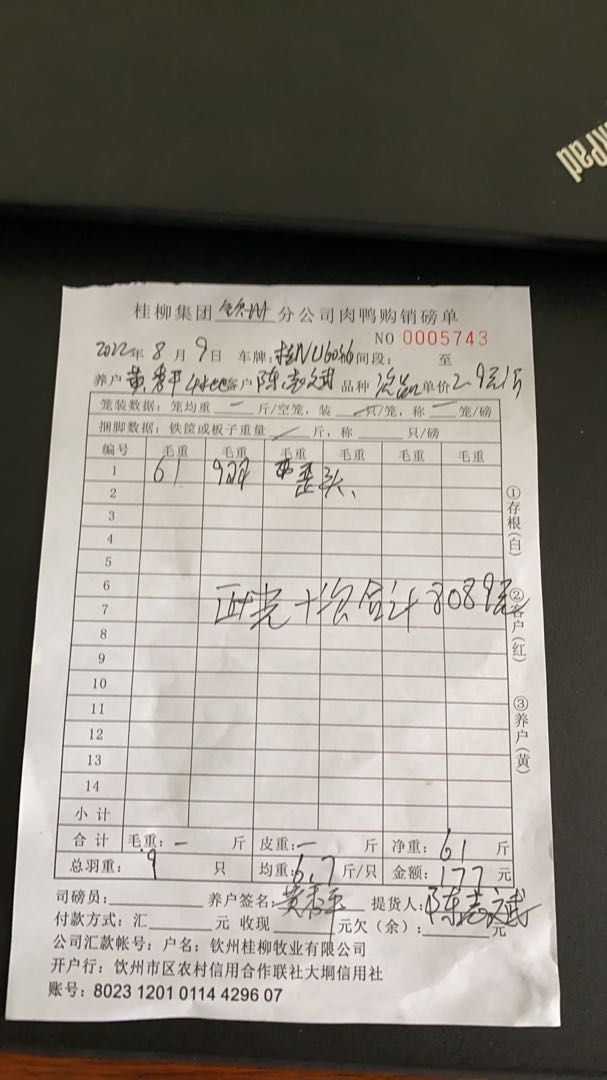 nkPad
桂柳集团 钦州 分公司肉鸭购销磅单
NO 0005743
2022年 8月 9日 车牌: 桂NU6036 间段: 至
养户 黄秀平 客户 陈志斌 品种 次品 单价 2.9元/斤
笼装数据: 笼均重 一 斤/空笼, 装 一 只/笼, 称 一 笼/磅
捆脚数据: 铁筐或板子重量 斤, 称 只/磅
编号 毛重 毛重 毛重 毛重 毛重 毛重
1 61 9羽 歪头
2
3
4
5
6
7 正品+次品合计8089元
8
9
10
11
12
13
14
小计
合计 毛重: 一 斤 皮重: 一 斤 净重: 61 斤
总羽重: 9 只 均重: 6.7 斤/只 金额: 177 元
司磅员: 养户签名: 黄秀平 提货人: 陈志斌
付款方式: 汇 元 收现 元欠(余): 元
公司汇款帐号: 户名: 钦州桂柳牧业有限公司
开户行: 钦州市区农村信用合作联社大垌信用社
账号: 8023 1201 0114 4296 07
①存根(白)
②客户(红)
③养户(黄)